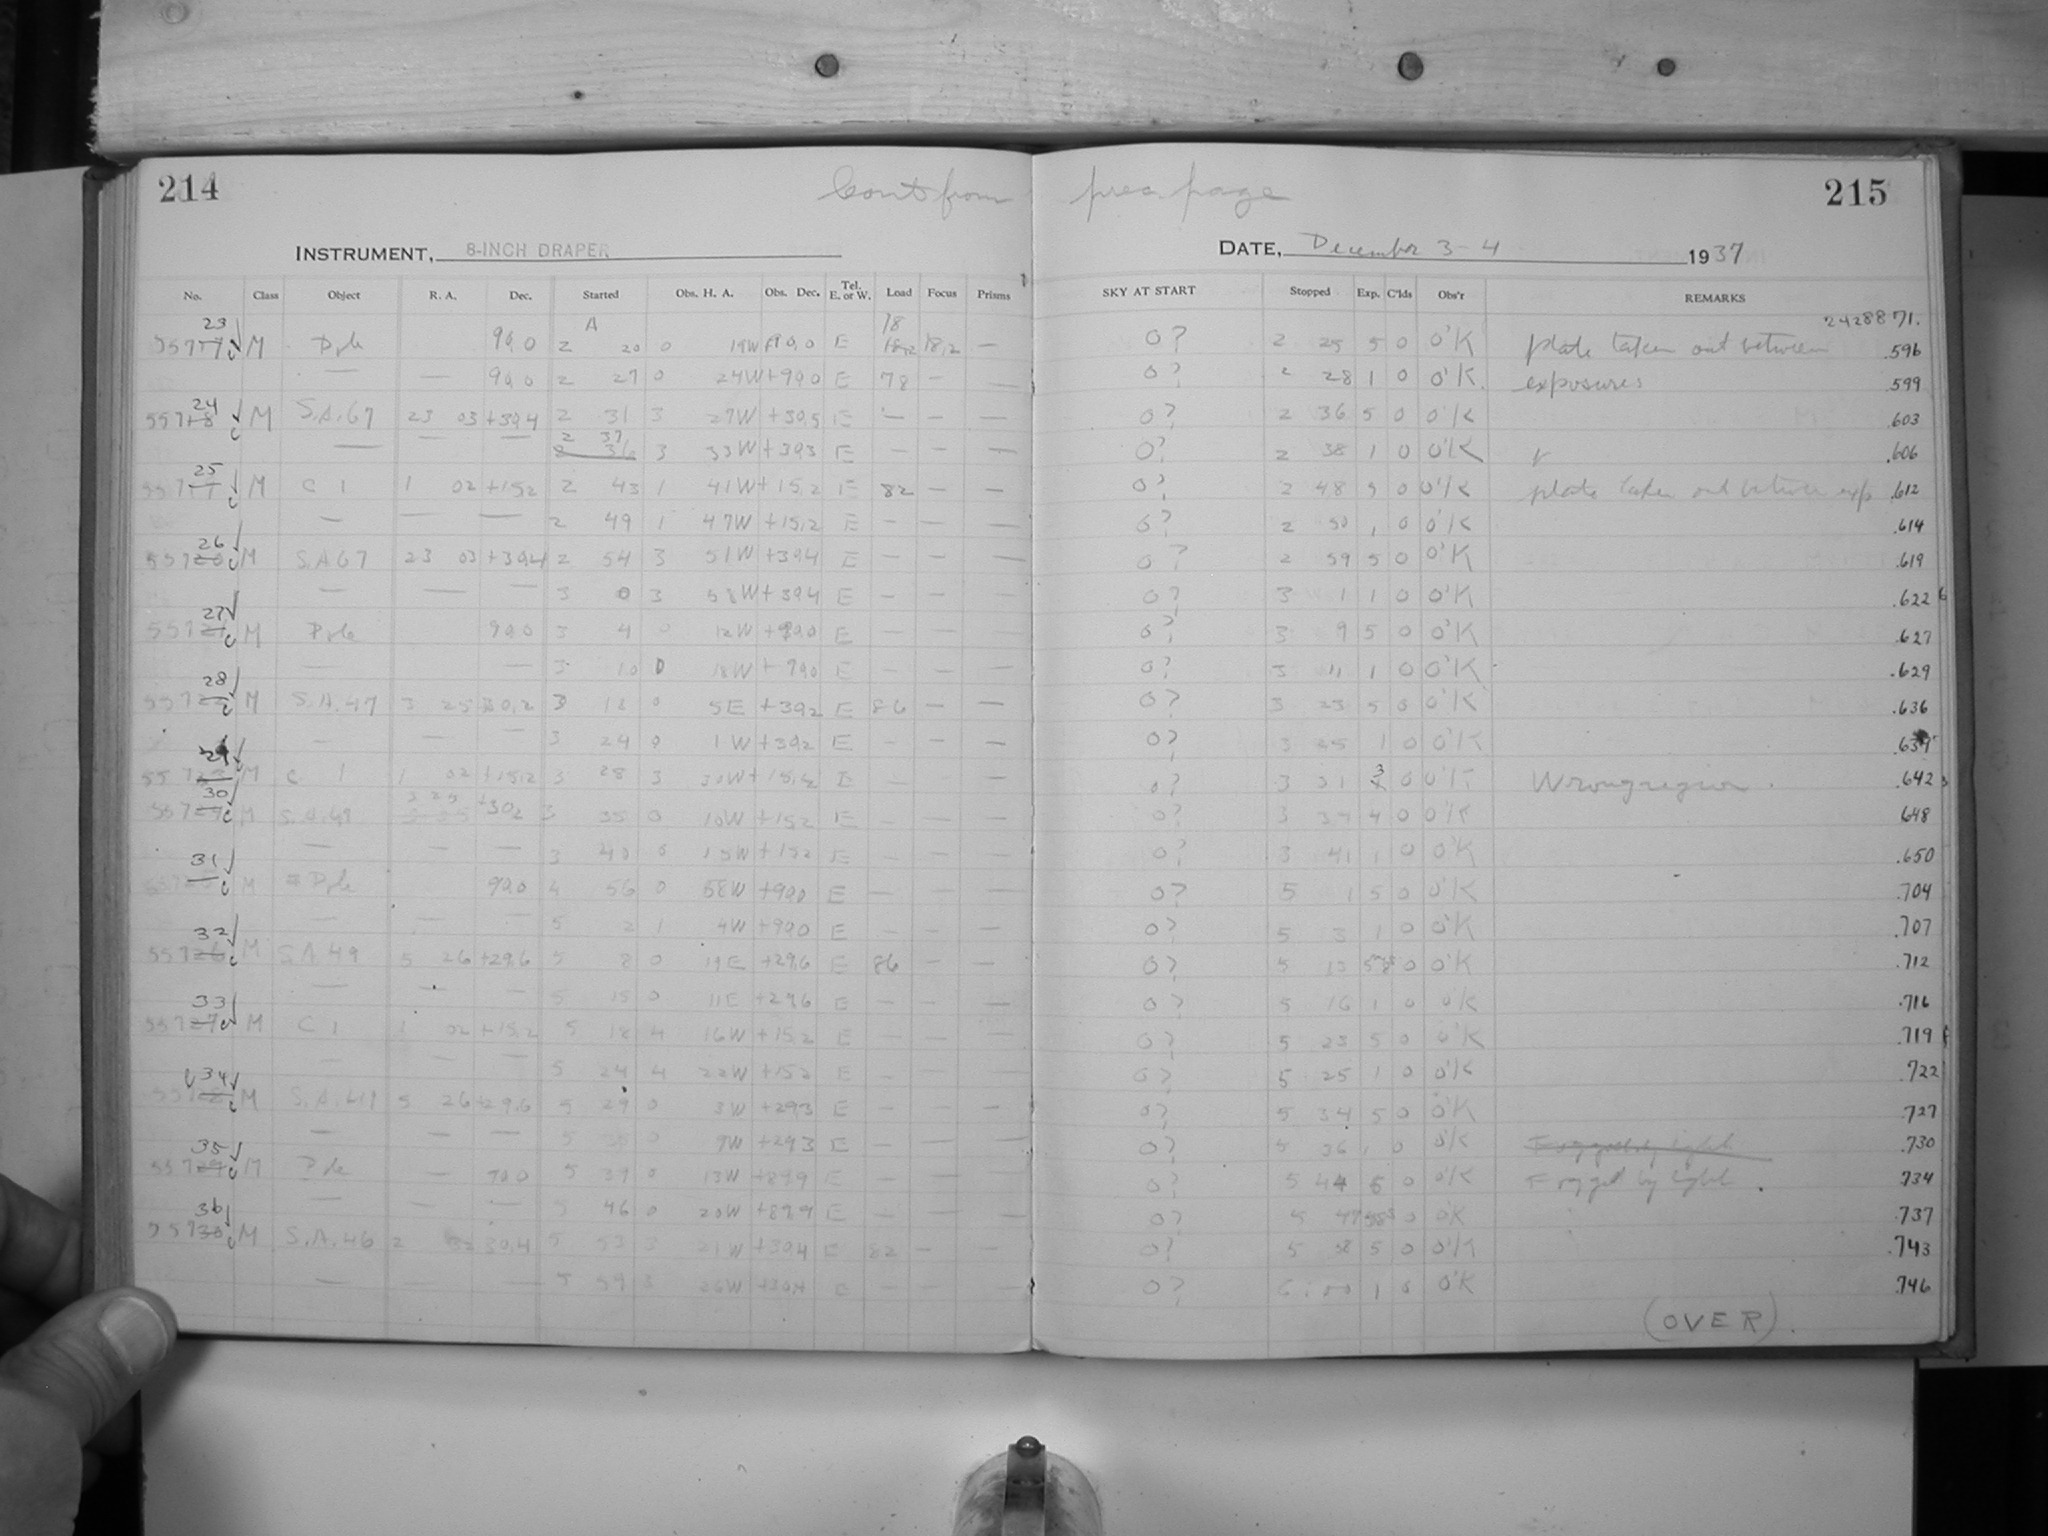 214 Cont from prec. page 215
INSTRUMENT, 8-INCH DRAPER DATE, December 3-4 1937
No. Class Object R. A. Dec. Started Obs. H. A. Obs. Dec. Tel. E. or W. Load Focus Prisms SKY AT START Stopped Exp. C'lds Obs'r REMARKS
23 A 18 2428871.
M Pole 90,0 2 20 0 19W E 18,2 — 0? 2 25 5 0 O'K plate taken out between .596
— — 90,0 2 27 0 24W +90,0 E 78 — — 0? 2 28 1 0 O'K exposures .599
24
M S.A.67 23 03 +30,4 2 31 3 27W +30,5 E — — — 0? 2 36 5 0 O'K .603
2 37
— — — 3 33W +30,3 E — — — 0? 2 38 1 0 O'K .606
25
M C 1 1 02 +15,2 2 43 1 41W +15,2 E 82 — — 0? 2 48 5 0 O'K plate taken out between exp .612
— — — 2 49 1 47W +15,2 E — — — 0? 2 50 1 0 O'K .614
26
M S.A.67 23 03 +30,4 2 54 3 51W +30,4 E — — — 0? 2 59 5 0 O'K .619
— — — 3 0 3 58W +30,4 E — — — 0? 3 1 1 0 O'K .622
27
M Pole 90,0 3 4 0 12W +90,0 E — — — 0? 3 9 5 0 O'K .627
— — 3 10 0 18W +90,0 E — — — 0? 3 11 1 0 O'K .629
28
M S.A.47 3 25 30,2 3 18 0 5E +30,2 E 86 — — 0? 3 23 5 0 O'K .636
— — — 3 24 0 1W +30,2 E — — — 0? 3 25 1 0 O'K
29
M C 1 1 02 +15,2 3 28 3 30W E — — — 0? 3 31 3 0 O'K Wrong region. .642
30
M 3 25 +30,2 3 35 0 10W +15,2 E — — — 0? 3 39 4 0 O'K .648
— — — 3 40 0 15W +15,2 E — — — 0? 3 41 1 0 O'K .650
31
M Pole 90,0 4 56 0 58W +90,0 E — — — 0? 5 1 5 0 O'K .704
— — — 5 2 1 4W +90,0 E — — — 0? 5 3 1 0 O'K .707
32
M S.A.49 5 26 +29,6 5 8 0 E +29,6 E 86 — — 0? 5 13 0 O'K .712
— — — 5 15 0 11E +29,6 E — — — 0? 5 16 1 0 O'K .716
33
M C 1 1 02 +15,2 5 18 4 16W +15,2 E — — — 0? 5 23 5 0 O'K .719
— — — 5 24 4 22W +15,2 E — — — 0? 5 25 1 0 O'K .722
34
M 5 26 +29,6 5 29 0 3W +29,3 E — — — 0? 5 34 5 0 O'K .727
— — — 5 35 0 9W +29,3 E — — — 0? 5 36 1 0 O'K Fogged by light .730
35
M Pole — 90,0 5 39 0 13W +89,9 E — — — 0? 5 44 5 0 O'K Fogged by light. .734
— — — 5 46 0 20W +89,9 E — — — 0? 5 47 0 O'K .737
36
M S.A.46 2 30,4 5 53 3 21W +30,4 E 82 — — 0? 5 58 5 0 O'K .743
— — — 5 59 3 26W +30,4 E — — — 0? 6 00 1 0 O'K .746
(OVER).